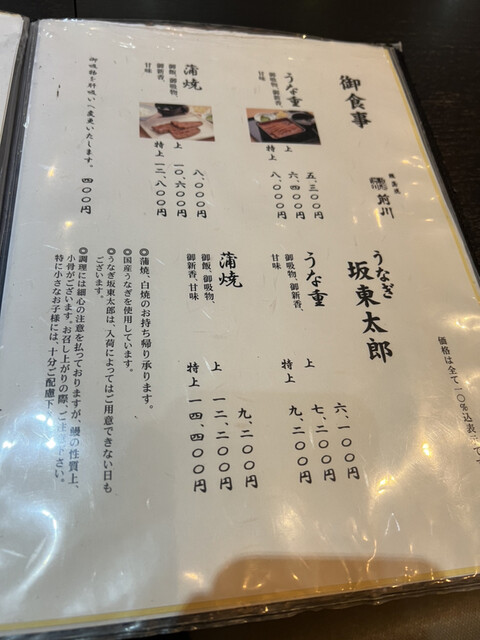 御食事
前川
うな重
御吸物、御新香、
甘味
五、三〇〇円
上 六、四〇〇円
特上 八、〇〇〇円
蒲焼
御飯、御吸物、
御新香、甘味
八、〇〇〇円
上 一〇、六〇〇円
特上 一二、八〇〇円
御吸物を肝吸いへ変更いたします。 四〇〇円
価格は全て一〇%込表
うなぎ
坂東太郎
うな重
御吸物、御新香、
甘味
六、一〇〇円
上 七、二〇〇円
特上 九、二〇〇円
蒲焼
御飯、御吸物、
御新香、甘味
九、二〇〇円
上 一二、二〇〇円
特上 一四、四〇〇円
◎蒲焼、白焼のお持ち帰り承ります。
◎国産うなぎを使用しています。
◎うなぎ坂東太郎は、入荷によってはご用意できない日も
ございます。
◎調理には細心の注意を払っておりますが、鰻の性質上、
小骨がございます。お召し上がりの際、ご注意下さい。
特に小さなお子様には、十分ご配慮下